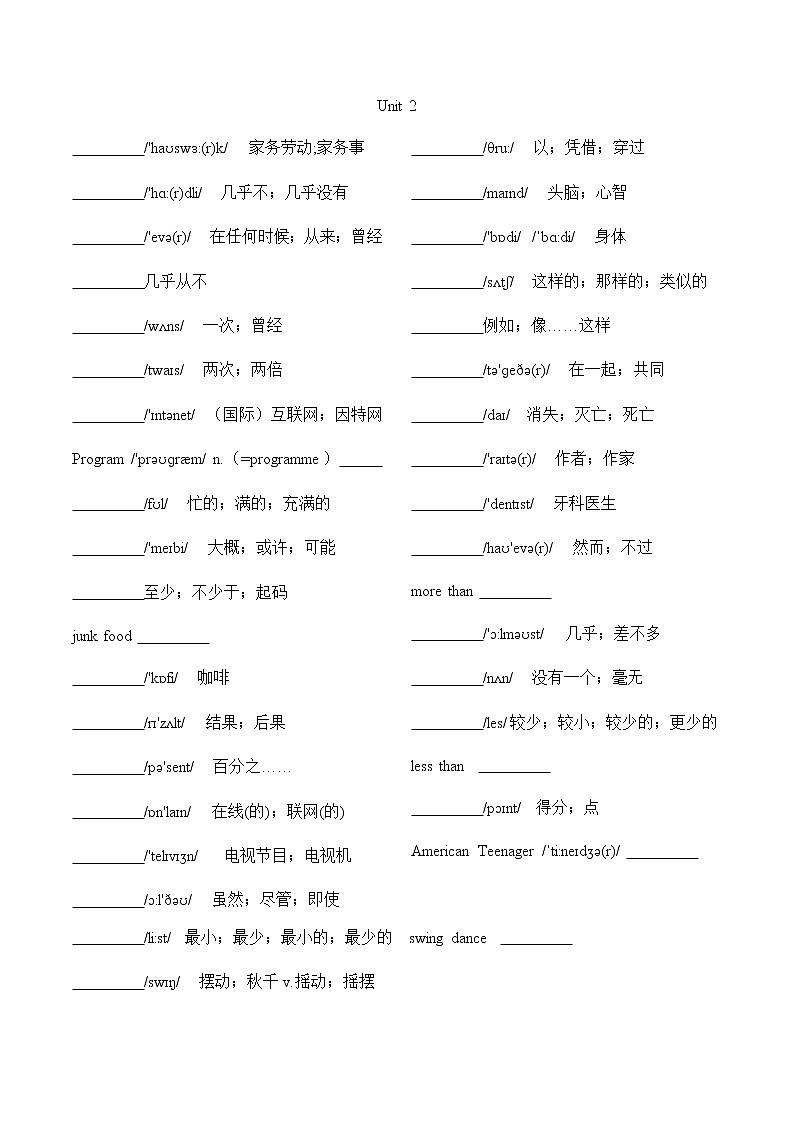 Unit 2
_________/'haʊswɜ:(r)k/ 家务劳动;家务事
_________/'hɑ:(r)dli/ 几乎不；几乎没有
_________/'evə(r)/ 在任何时候；从来；曾经
_________几乎从不
_________/wʌns/ 一次；曾经
_________/twaɪs/ 两次；两倍
_________/'ɪntənet/ （国际）互联网；因特网
Program /'prəʊɡræm/ n.（=programme ）______
_________/fʊl/ 忙的；满的；充满的
_________/'meɪbi/ 大概；或许；可能
_________至少；不少于；起码
junk food _________
_________/'kɒfi/ 咖啡
_________/rɪ'zʌlt/ 结果；后果
_________/pə'sent/ 百分之……
_________/ɒn'laɪn/ 在线(的)；联网(的)
_________/'telɪvɪʒn/ 电视节目；电视机
_________/ɔ:l'ðəʊ/ 虽然；尽管；即使
_________/θru:/ 以；凭借；穿过
_________/maɪnd/ 头脑；心智
_________/'bɒdi/ /'bɑ:di/ 身体
_________/sʌtʃ/ 这样的；那样的；类似的
_________例如；像……这样
_________/tə'ɡeðə(r)/ 在一起；共同
_________/daɪ/ 消失；灭亡；死亡
_________/'raɪtə(r)/ 作者；作家
_________/'dentɪst/ 牙科医生
_________/haʊ'evə(r)/ 然而；不过
more than _________
_________/'ɔ:lməʊst/ 几乎；差不多
_________/nʌn/ 没有一个；毫无
_________/les/较少；较小；较少的；更少的
less than _________
_________/pɔɪnt/ 得分；点
American Teenager /'ti:neɪdʒə(r)/ _________
_________/li:st/ 最小；最少；最小的；最少的 swing dance _________
_________/swɪŋ/ 摆动；秋千 v.摇动；摇摆